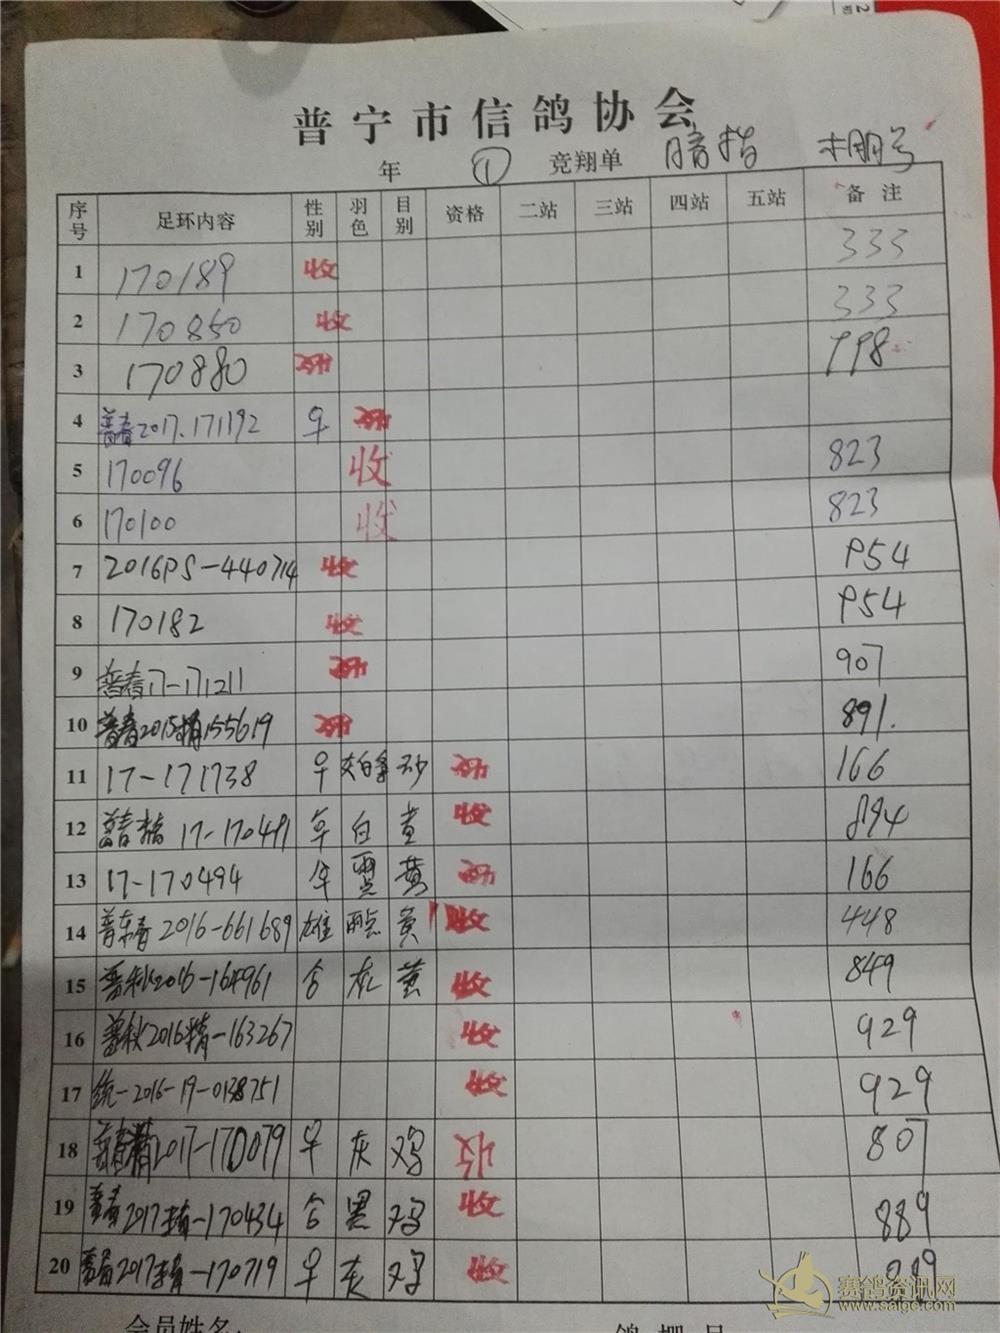 普宁市信鸽协会
年 ① 竞翔单 暗指 棚号
序号 足环内容 性别 羽色 目别 资格 二站 三站 四站 五站 备注
1 170189 收 333
2 170850 收 333
3 170880 收 998
4 普春2017.171192 早 收
5 170096 收 823
6 170100 收 823
7 2016PS-440714 收 954
8 170182 收 954
9 普春17-171211 收 907
10 普春2015指155619 收 891.
11 17-171738 早 砂 166
12 17-170491 白 黄 收 894
13 17-170494 黄 166
14 普东春2016-661689 雄 雨点 黄 收 448
15 普秋2016-164961 合 灰 黄 收 849
16 普秋2016指-163267 收 929
17 统-2016-19-0138751 收 929
18 普春2017-170079 早 灰 鸡 收 807
19 普春2017指-170434 合 黑 鸡 收 889
20 普春2017指-170719 早 灰 鸡 收 889
会员姓名: 鸽棚号
赛鸽资讯网
www.saige.com